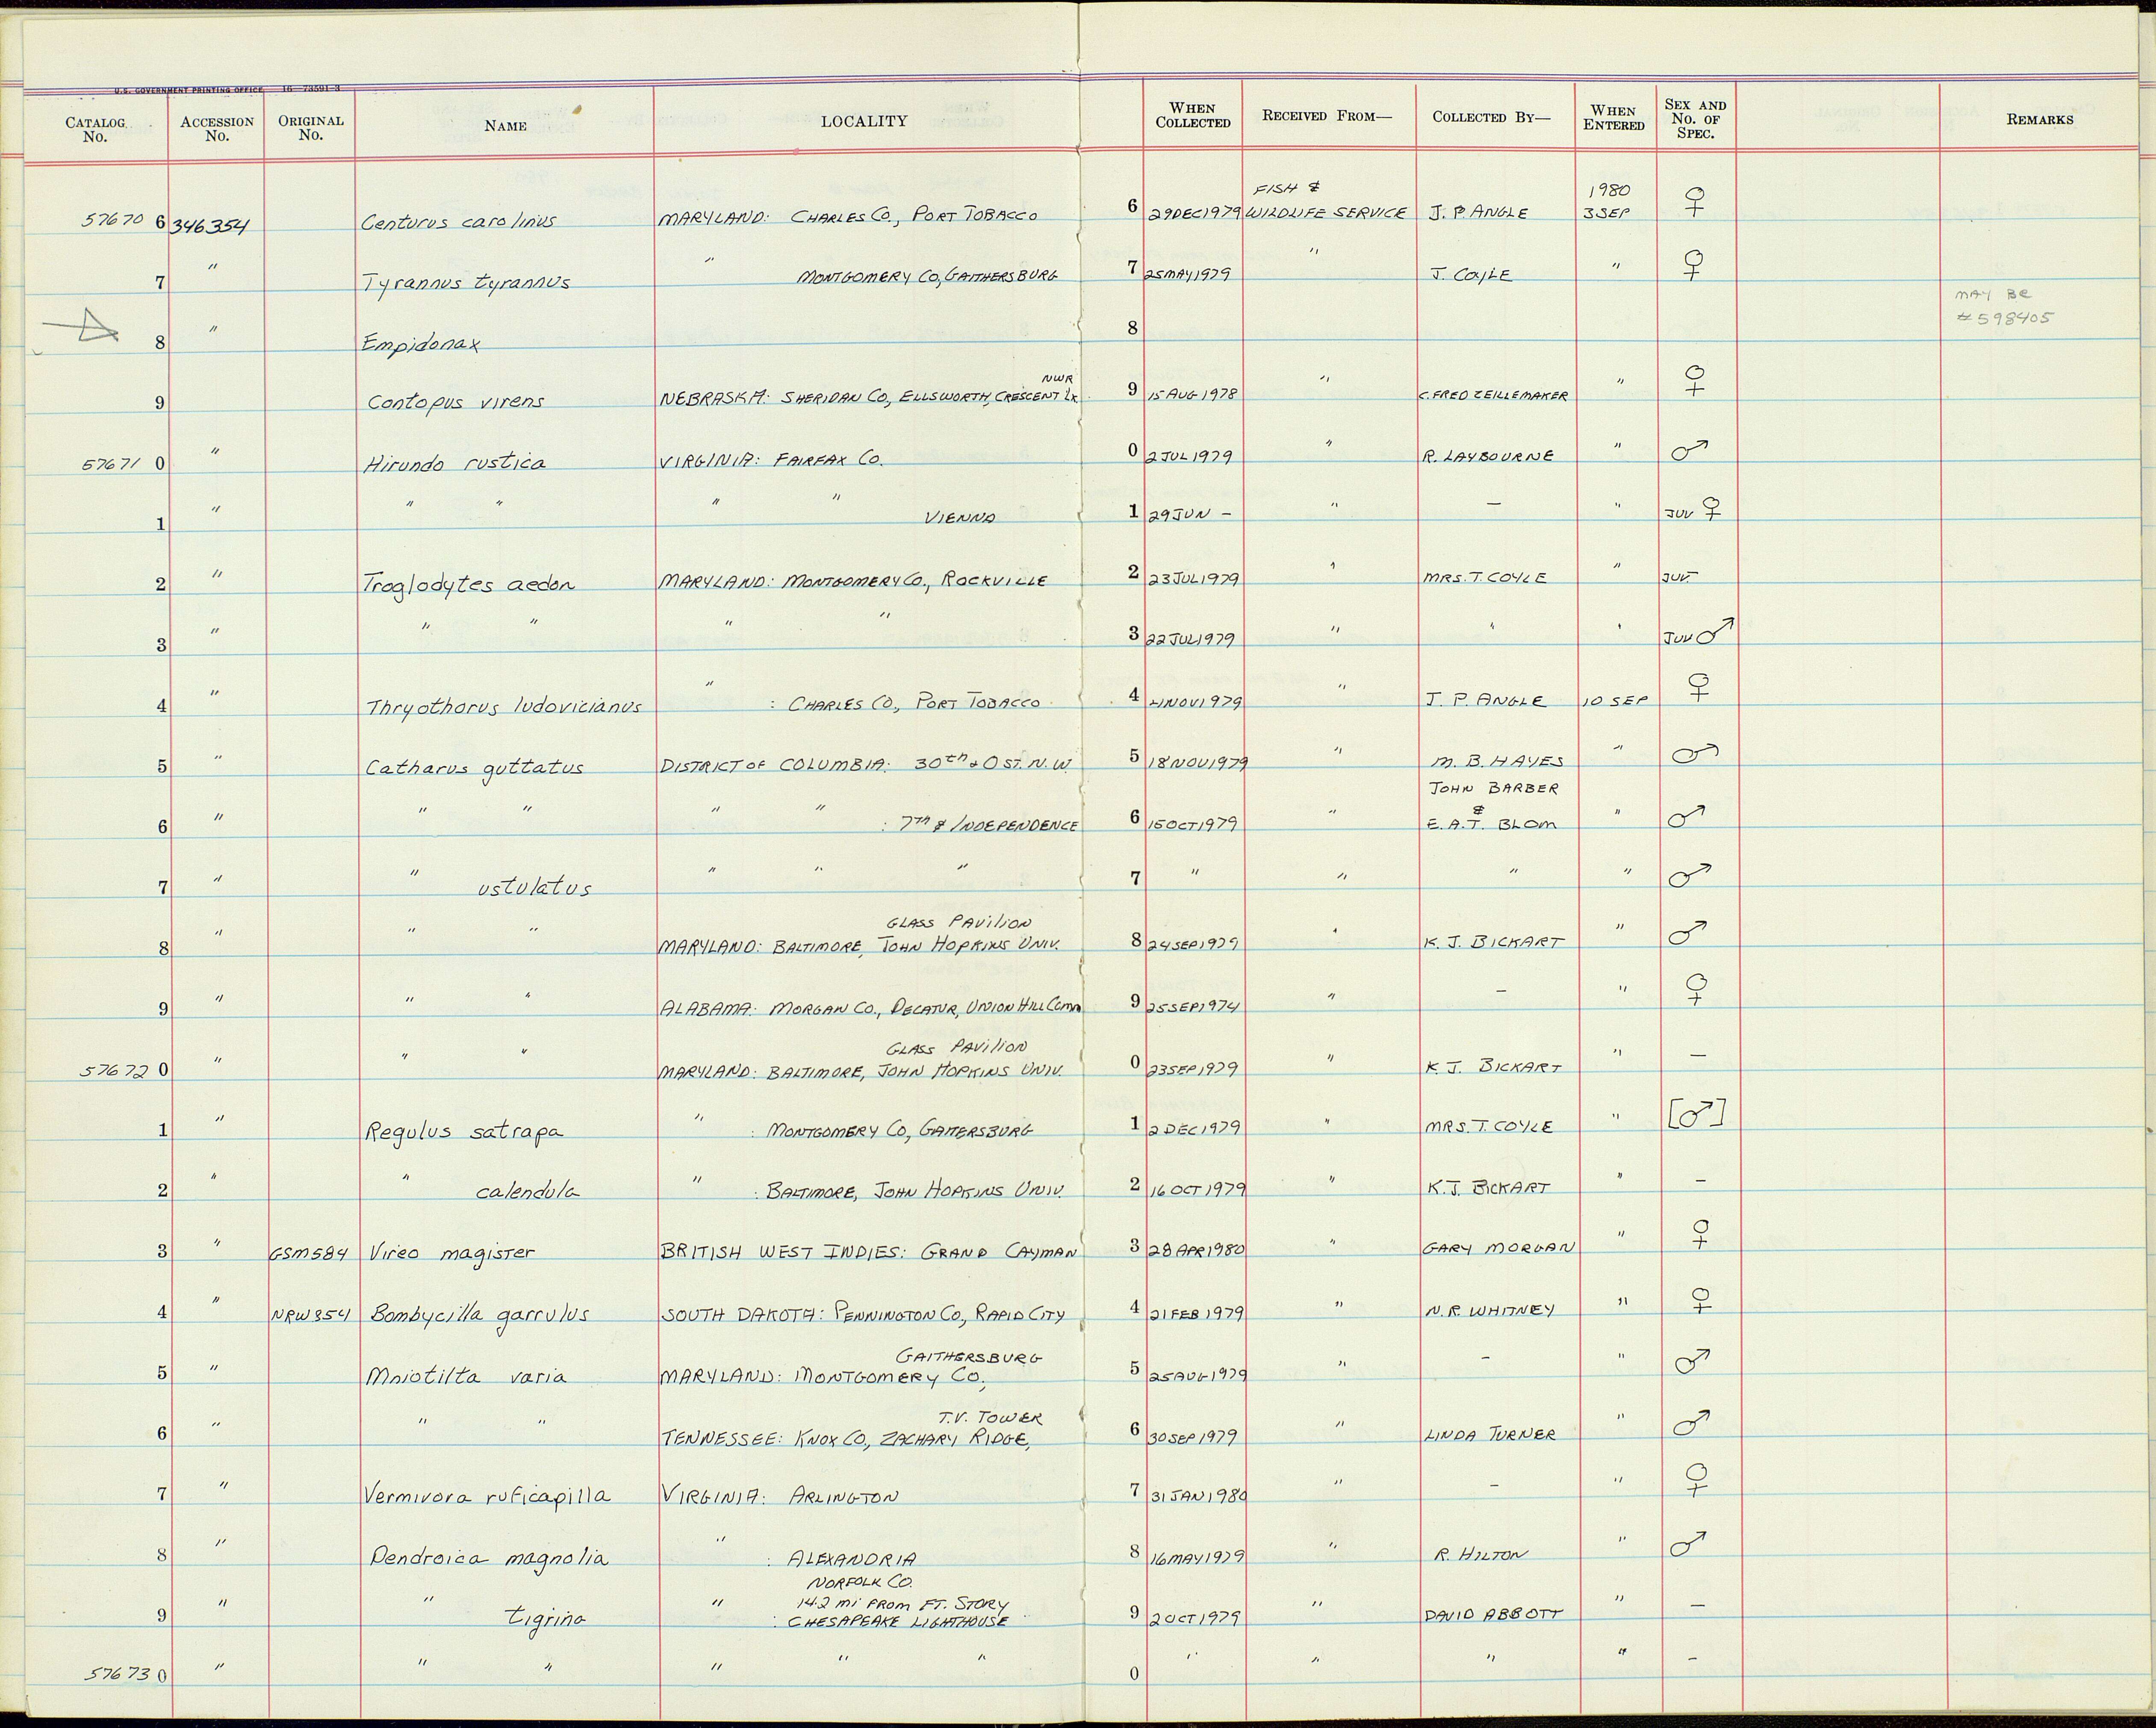 U.S. GOVERNMENT PRINTING OFFICE 16—73591-3
CATALOG No. ACCESSION No. ORIGINAL No. NAME LOCALITY WHEN COLLECTED RECEIVED FROM— COLLECTED BY— WHEN ENTERED SEX AND No. OF SPEC. REMARKS
57670 6 346354 Centurus carolinus MARYLAND: CHARLES CO., PORT TOBACCO 6 29DEC1979 FISH & WILDLIFE SERVICE J. P. ANGLE 1980 3SEP ♀
7 " Tyrannus tyrannus " MONTGOMERY CO, GAITHERSBURG 7 25MAY1979 " J. COYLE " ♀
8 " Empidonax 8 MAY BE #598405
9 Contopus virens NEBRASKA: SHERIDAN CO, ELLSWORTH, CRESCENT LK NWR 9 15AUG1978 " C. FRED ZEILLEMAKER " ♀
57671 0 " Hirundo rustica VIRGINIA: FAIRFAX CO. 0 2JUL1979 " R. LAYBOURNE " ♂
1 " " " " " VIENNA 1 29JUN — " — " JUV ♀
2 " Troglodytes aedon MARYLAND: MONTGOMERY CO., ROCKVILLE 2 23JUL1979 " MRS. T. COYLE " JUV —
3 " " " " " 3 22JUL1979 " " " JUV ♂
4 " Thryothorus ludovicianus " : CHARLES CO, PORT TOBACCO 4 NOV1979 " J. P. ANGLE 10 SEP ♀
5 " Catharus guttatus DISTRICT OF COLUMBIA: 30th & O ST. N.W. 5 18NOV1979 " M. B. HAYES " ♂
6 " " " " " : 7TH & INDEPENDENCE 6 15OCT1979 " JOHN BARBER & E.A.T. BLOM " ♂
7 " " ustulatus " " " 7 " " " " ♂
8 " " " MARYLAND: BALTIMORE, JOHN HOPKINS UNIV. GLASS PAVILION 8 24SEP1979 " K. J. BICKART " ♂
9 " " " ALABAMA: MORGAN CO., DECATUR, UNION HILL COMM 9 25SEP1974 " — " ♀
57672 0 " " " MARYLAND: BALTIMORE, JOHN HOPKINS UNIV. GLASS PAVILION 0 23SEP1979 " K. J. BICKART " —
1 " Regulus satrapa " : MONTGOMERY CO, GAITERSBURG 1 2DEC1979 " MRS. T. COYLE " [♂]
2 " " calendula " : BALTIMORE, JOHN HOPKINS UNIV. 2 16OCT1979 " K. J. BICKART " —
3 " GSM584 Vireo magister BRITISH WEST INDIES: GRAND CAYMAN 3 28APR1980 " GARY MORGAN " ♀
4 " NRW354 Bombycilla garrulus SOUTH DAKOTA: PENNINGTON CO., RAPID CITY 4 21FEB1979 " N. R. WHITNEY " ♀
5 " Mniotilta varia MARYLAND: MONTGOMERY CO., GAITHERSBURG 5 25AUG1979 " — " ♂
6 " " " TENNESSEE: KNOX CO., ZACHARY RIDGE, T.V. TOWER 6 30SEP1979 " LINDA TURNER " ♂
7 " Vermivora ruficapilla VIRGINIA: ARLINGTON 7 31JAN1980 " — " ♀
8 " Dendroica magnolia " : ALEXANDRIA 8 16MAY1979 " R. HILTON " ♂
9 " " tigrina " NORFOLK CO. 14.2 mi FROM FT. STORY : CHESAPEAKE LIGHTHOUSE 9 2OCT1979 " DAVID ABBOTT " —
57673 0 " " " " " " 0 " " " " —